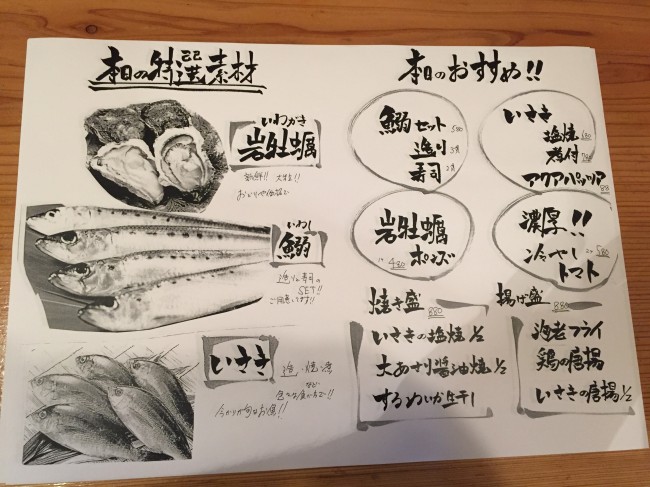 本日の特選素材
いわがき
岩牡蠣
新鮮!! 大きい!!
いわし
鰯
造りと寿司の
SET!!
ご用意してます!!
いさき
造 焼 煮
など
今からが旬なお魚!!
本日のおすすめ!!
鰯セット 580
造り 3貫
寿司 2貫
いさき
塩焼 680
煮付
アクアパッツァ
岩牡蠣
ポンズ
480
濃厚!!
冷やし 580
トマト
焼き盛 880
いさきの塩焼 1/2
大あさり醤油焼 1/2
するめいか生干し
揚げ盛 880
海老フライ
鶏の唐揚
いさきの唐揚 1/2